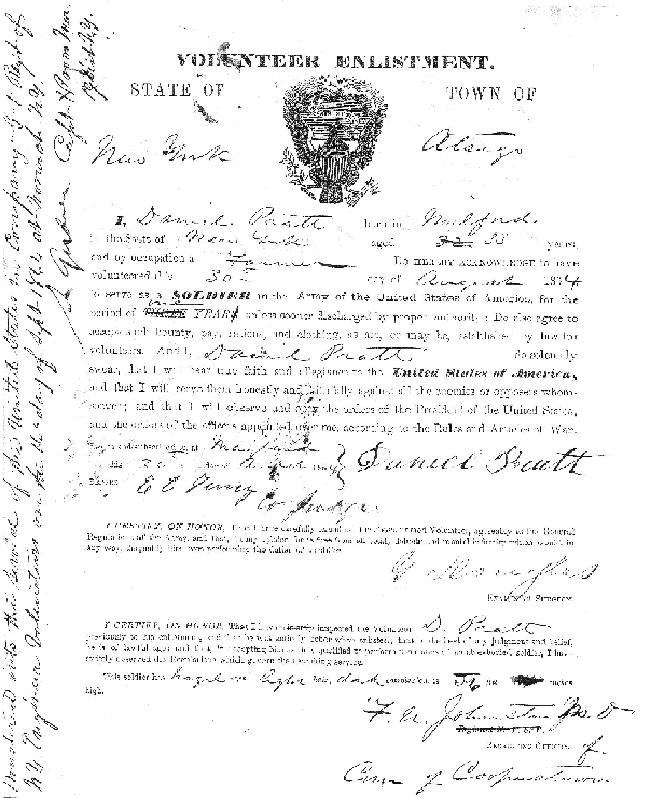 VOLUNTEER ENLISTMENT.
STATE OF TOWN OF
New York Otsego
I, Daniel Pratt born in Milford
in the State of New York aged 32 33 years,
and by occupation a Farmer Do HEREBY ACKNOWLEDGE to have
volunteered this 30th day of August 1864
to serve as a SOLDIER in the Army of the United States of America, for the
period of THREE YEARS unless sooner discharged by proper authority: Do also agree to
accept such bounty, pay, rations, and clothing, as are, or may be, established by law for
volunteers. And I, Daniel Pratt do solemnly
swear, that I will bear true faith and allegiance to the United States of America,
and that I will serve them honestly and faithfully against all their enemies or opposers whom-
soever; and that I will observe and obey the orders of the President of the United States,
and the orders of the officers appointed over me, according to the Rules and Articles of War.
Sworn and subscribed to, at
this 30 day of
BEFORE
Co Judge
Daniel Pratt
I CERTIFY, ON HONOR, That I have carefully examined the above named Volunteer, agreeably to the General
Regulations of the Army, and that, in my opinion, he is free from all bodily defects and mental infirmity, which would, in
any way, disqualify him from performing the duties of a soldier.
Douglas
EXAMINING SURGEON.
I CERTIFY, ON HONOR, That I have minutely inspected the Volunteer D. Pratt
previously to his enlistment, and that he was entirely sober when enlisted; that, to the best of my judgment and belief,
he is of lawful age; and that, in accepting him as duly qualified to perform the duties of an able-bodied soldier, I have
strictly observed the Regulations which govern the recruiting service.
This soldier has hazel eyes, light hair, dark complexion, is feet inches
high.
F. U. Johnston M. D
RECRUITING OFFICER. of
Com of Cooperstown
Mustered into the service of the United States in Company G 1 Regt of
NY Engineer Volunteers on the day of Sept 1864 at Norwich NY
Gordon Capt &